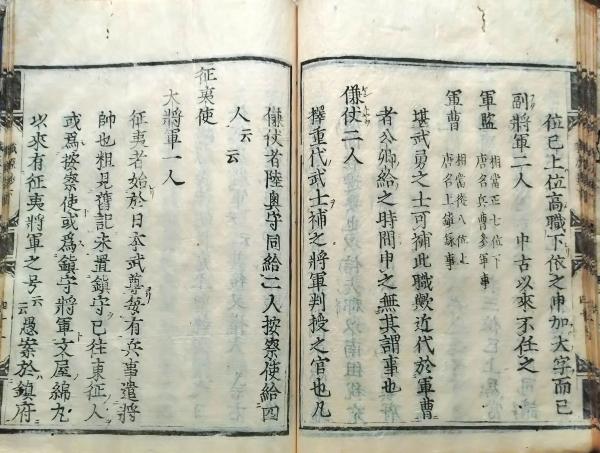 位已上位高職下依之申加大字而已
副將軍二人 中古以來不任之
軍監 相當正七位下
唐名兵曹參軍事
軍曹 相當從八位上
唐名上鎮錄事
堪武勇之士可補此職歟近代於軍曹
者公卿給之時間申之無其謂事也
傔仗二人
擇重代武士補之將軍判授之官也凡
傔仗者陸奥守同給二人按察使給四
人云云
征夷使
大將軍一人
征夷者始於日本武尊每有兵事遣將
帥也粗見舊記未置鎮守已往東征人
或爲按察使或爲鎮守將軍文屋綿丸
以來有征夷將軍之号云云愚案於鎮府